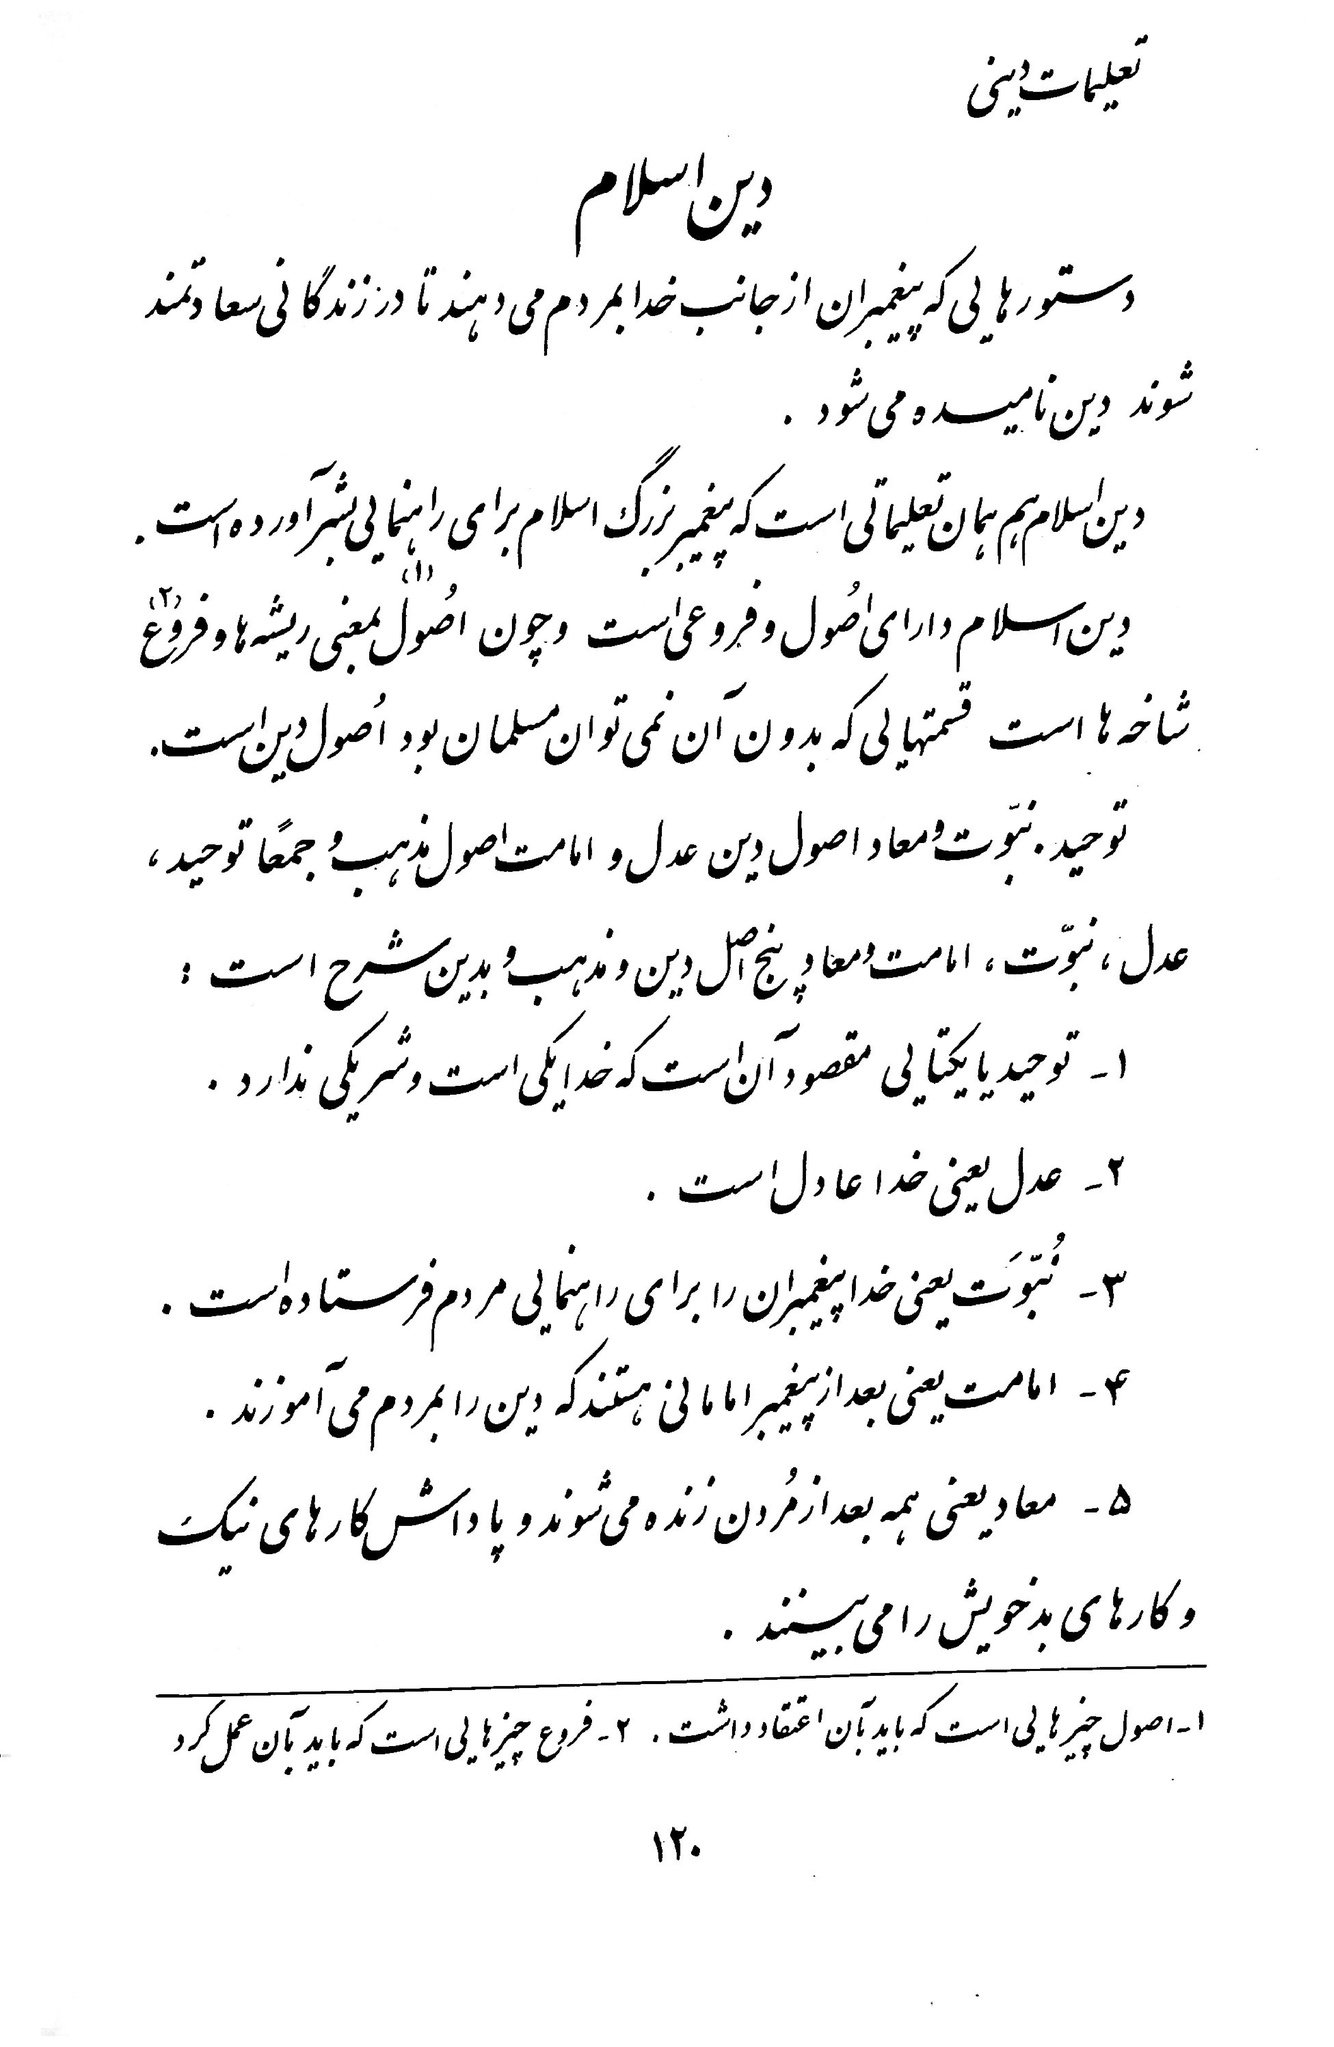 تعلیمات دینی
دین اسلام
دستورهایی که پیغمبران از جانب خدا بمردم می دهند تا در زندگانی سعادتمند
شوند دین نامیده می شود .
دین اسلام هم همان تعلیماتی است که پیغمبر بزرگ اسلام برای راهنمایی بشر آورده است .
دین اسلام دارای اُصول و فروعی است و چون اُصول (۱) بمعنی ریشه ها و فروع (۲)
شاخه ها است قسمتهایی که بدون آن نمی توان مسلمان بود اُصول دین است .
توحید . نبّوت و معاد اصول دین عدل و امامت اصول مذهب و جمعًا توحید ،
عدل ، نبّوت ، امامت و معاد پنج اصل دین و مذهب و بدین شرح است :
۱ـ توحید یا یکتایی مقصود آن است که خدا یکی است و شریکی ندارد .
۲ـ عدل یعنی خدا عادل است .
۳ـ نُبّوَت یعنی خدا پیغمبران را برای راهنمایی مردم فرستاده است .
۴ـ امامت یعنی بعد از پیغمبر امامانی هستند که دین را بمردم می آموزند .
۵ـ معاد یعنی همه بعد از مُردن زنده می شوند و پاداش کارهای نیک
و کارهای بد خویش را می بینند .
۱ـ اصول چیزهایی است که باید بآن اعتقاد داشت . ۲ـ فروع چیزهایی است که باید بآن عمل کرد
۱۲۰